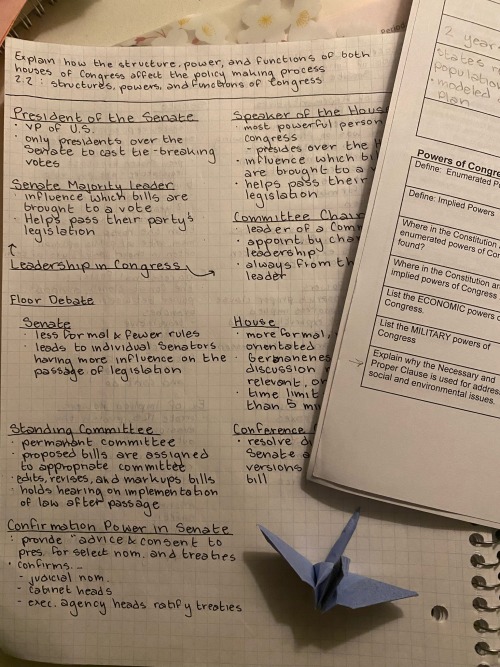 Explain how the structure, power, and functions of both
houses of Congress affect the policy making process
2.2: structures, powers, and functions of congress
President of the Senate
· VP of U.S.
· only presidents over the
Senate to cast tie-breaking
votes
Senate Majority leader
· influence which bills are
brought to a vote
· Helps pass their party's
legislation
↑
Leadership in Congress
Floor Debate
Senate
· less formal & fewer rules
· leads to individual Senators
having more influence on the
passage of legislation
Standing Committee
· permanent committee
· proposed bills are assigned
to appropriate committee
· edits, revises, and markups bills
· holds hearing on implementation
of law after passage
Confirmation Power in Senate
· provide "advice & consent to
pres. for select nom. and treaties
· confirms...
- judicial nom.
- cabinet heads
- exec. agency heads ratify treaties
Speaker of the Hous
· most powerful person
congress
- presides over the
· influence which bil
are brought to a v
· helps pass their
legislation
Committee Chair
· leader of a Comm
· appoint by cha
leadership
· always from th
leader
House
· more formal,
orientated
· Germaneness
discussion
relevant, or
time limit
than 5 mi
Conference
· resolve di
Senate a
versions
bill
period
2 year
states
population
· modeled
plan
Powers of Congre
Define: Enumerated P
Define: Implied Powers
Where in the Constitution
enumerated powers of Con
found?
Where in the Constitution ar
implied powers of Congress
List the ECONOMIC powers o
Congress.
List the MILITARY powers of
Congress
Explain why the Necessary and
Proper Clause is used for addres
social and environmental issues.